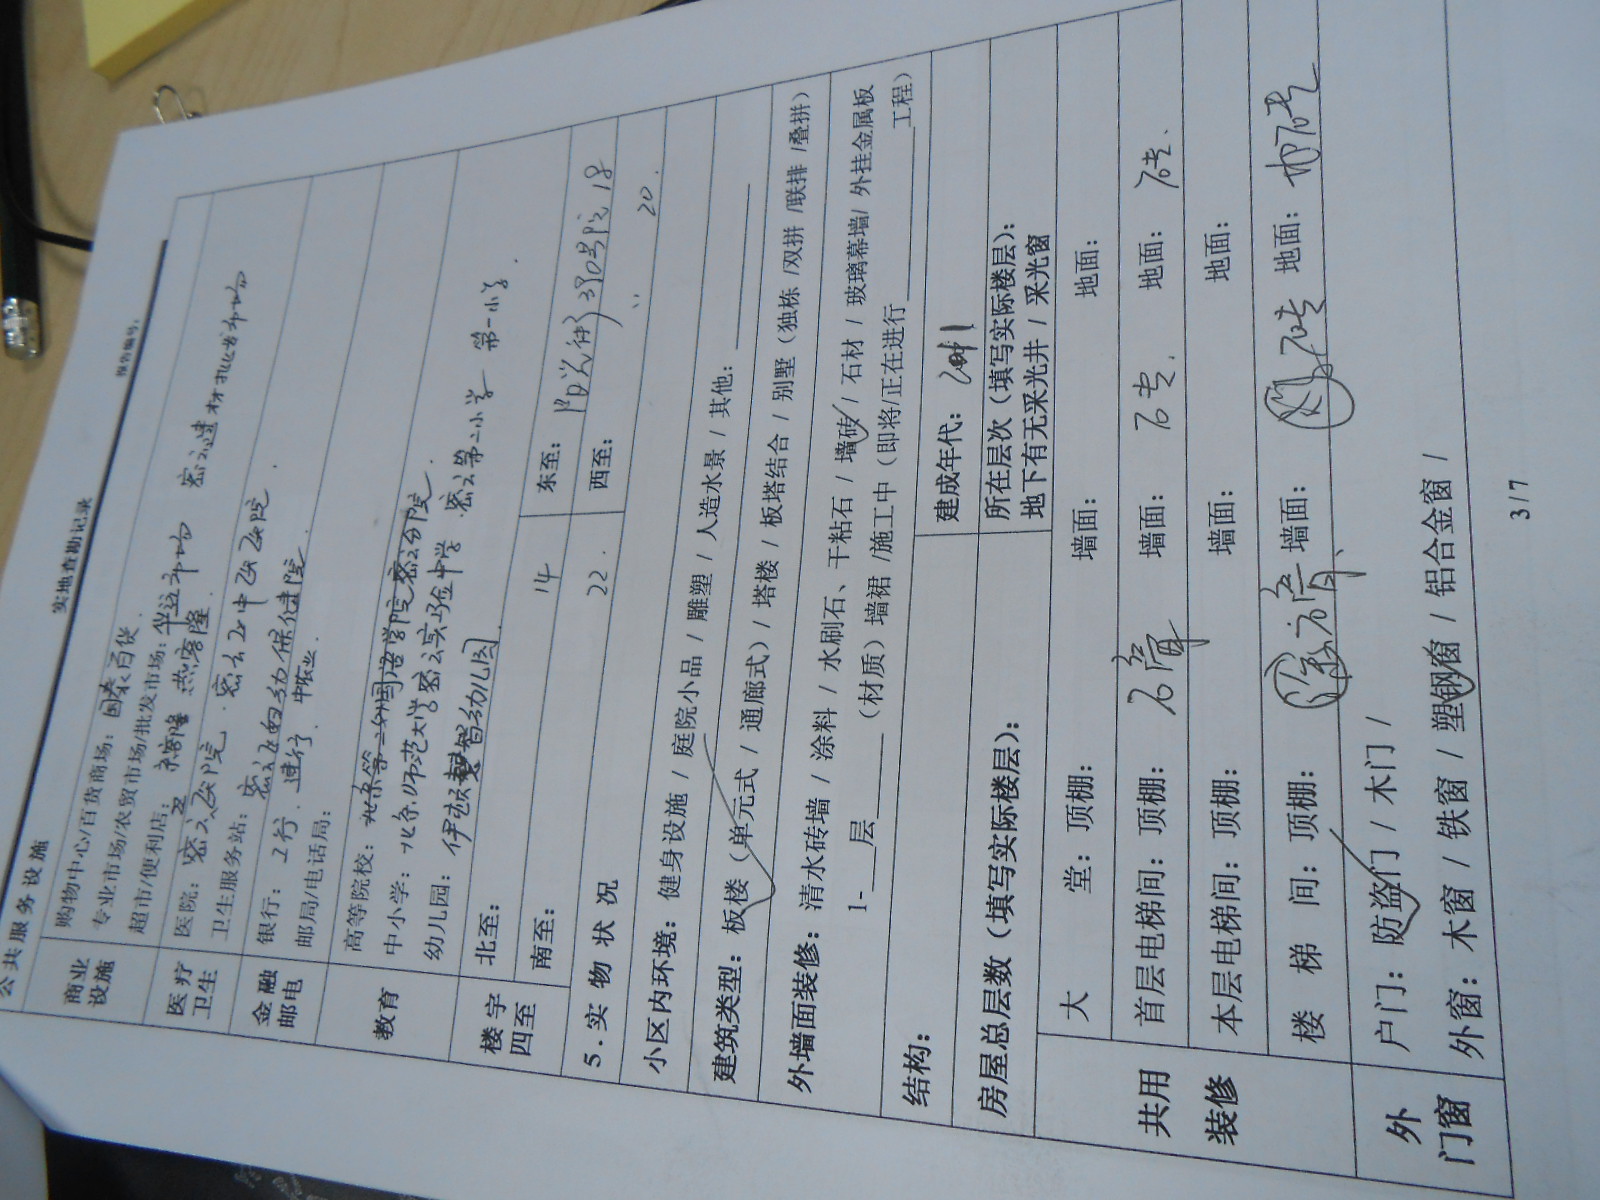 报告编号:
实地查勘记录
公共服务设施
商业设施
购物中心/百货商场: 国泰百货.
专业市场/农贸市场/批发市场: 华远市场 密云建材批发市场
超市/便利店:
医疗卫生
医院: 密云医院. 密云县中医医院
卫生服务站: 密云县妇幼保健院.
金融邮电
银行: 工行. 建行. 中农业.
邮局/电话局:
教育
高等院校:
中小学: 北京师范大学密云实验中学 密云第二小学 第一小学.
幼儿园: 伊顿慧智幼儿园.
楼宇四至
北至:
东至: 阳光街390号院18
南至: 14
西至:
5.实物状况 22. 20.
小区内环境: 健身设施 / 庭院小品 / 雕塑 / 人造水景 / 其他:
建筑类型: 板楼 (单元式 / 通廊式) / 塔楼 / 板塔结合 / 别墅 (独栋 /双拼 /联排 /叠拼)
外墙面装修: 清水砖墙 / 涂料 / 水刷石、干粘石 / 墙砖 / 石材 / 玻璃幕墙/ 外挂金属板
1-___层______(材质) 墙裙 /施工中 (即将/正在进行______工程)
结构:
建成年代:
房屋总层数 (填写实际楼层):
所在层次 (填写实际楼层):
地下有无采光井 / 采光窗
共用装修
大 堂: 顶棚: 墙面: 地面:
首层电梯间: 顶棚: 石膏 墙面: 石专. 地面: 石专.
本层电梯间: 顶棚: 墙面: 地面:
楼 梯 间: 顶棚: 石膏、 墙面: 砖 地面: 地砖
外门窗
户门: 防盗门 / 木门 /
外窗: 木窗 / 铁窗 / 塑钢窗 / 铝合金窗 /
3/7